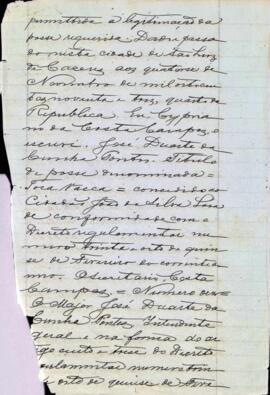 permittido à legitimação da
posse requerida. Dado e passa
do nesta cidade de São Luiz
de Caceres aos quatorze de
Novembro de mil oitocen
tos noventa e tres, quarto da
Republica. Eu Cypria
no da Costa Campos, o
escrevi. José Duarte da
Cunha Pontes. Titulo
de posse denominada =
= concedido ao
Cidadão João da Silva
de conformidade com o
Decreto regulamentar nu
mero trinta e oito de quin
se de Fevereiro do corrente an
no. O secretario, Costa
Campos. = Numero
O Major José Duarte da
Cunha Pontes, Intendente
geral e na forma do ar
tigo cento e treze do Decreto
regulamentar numero trin
ta e oito de quinse de Feve